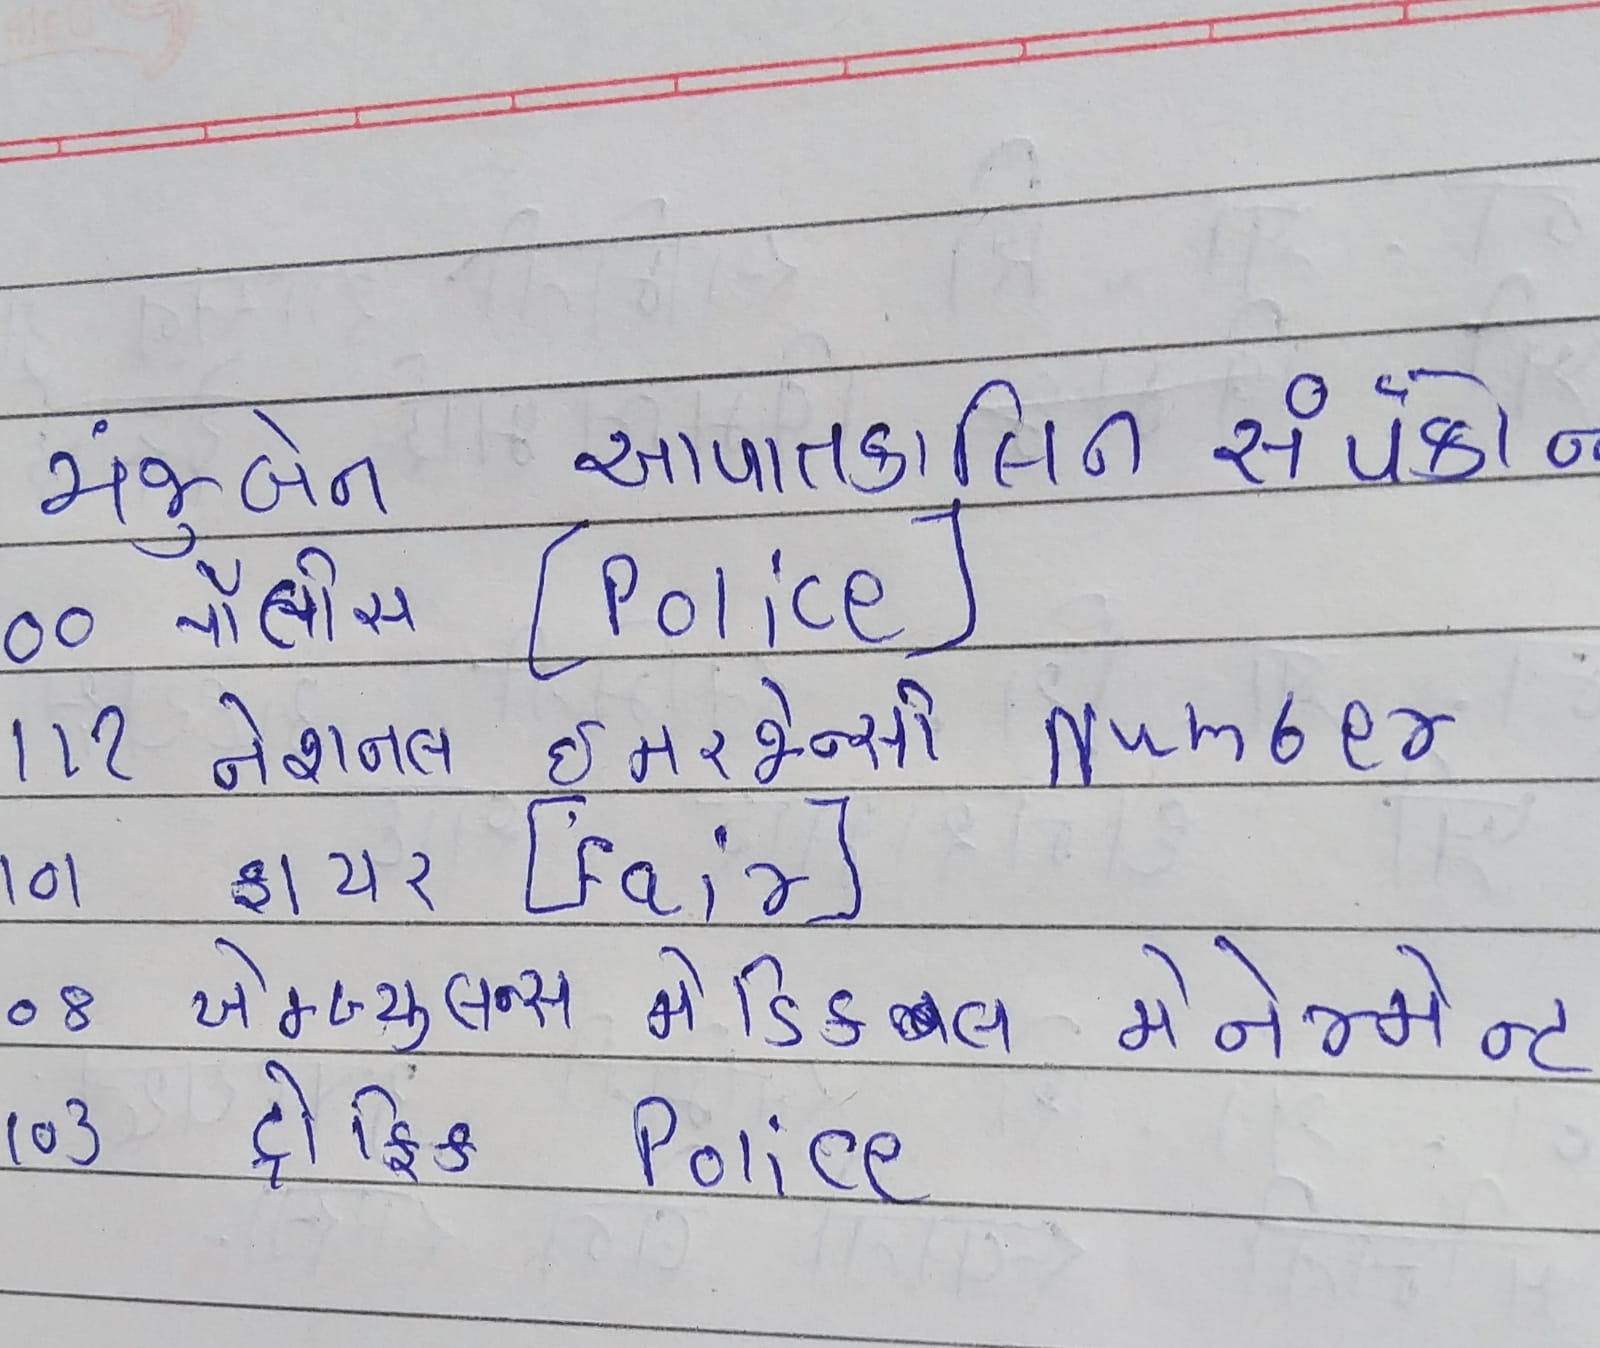 મંજુબેન આપાતકાલિન સંર્પકો
00 પોંલીસ [Police]
112 નેશનલ ઈમરજેન્સી Number
101 ફાયર [Fair]
08 એમ્બ્યુલન્સ મેડિકલ મેનેજમેન્ટ
103 ટ્રોફિક Police